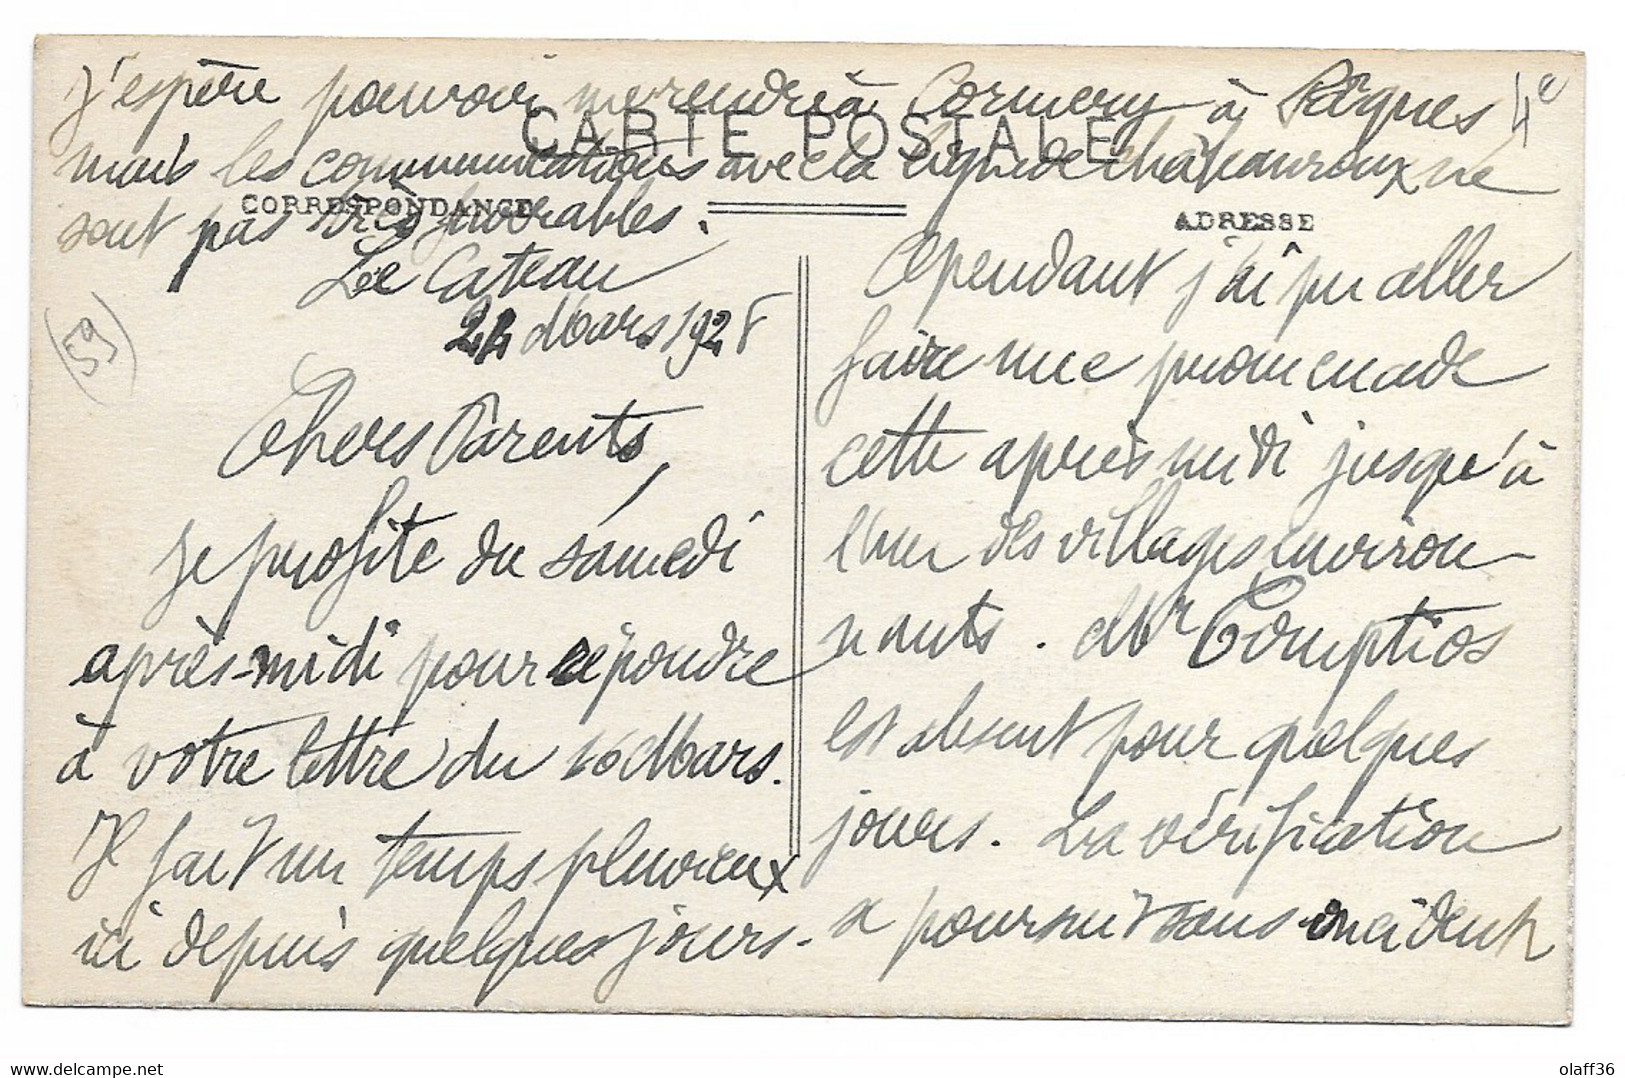 J'espère pouvoir me rendre à Cormery à Pâques
mais les communications avec la ligne de Châteauroux ne
sont pas très favorables.
4e
CARTE POSTALE
CORRESPONDANCE
ADRESSE
59
Le Cateau
24 Mars 1928
Chers Parents,
je profite du samedi
après-midi pour répondre
à votre lettre du 16 Mars.
Il fait un temps pluvieux
ici depuis quelques jours.
Cependant j'ai pu aller
faire une promenade
cette après midi jusqu'à
l'un des villages environ-
nants. Mr Comptios
est absent pour quelques
jours. La vérification
se poursuit sans incident
olaff36
www.delcampe.net